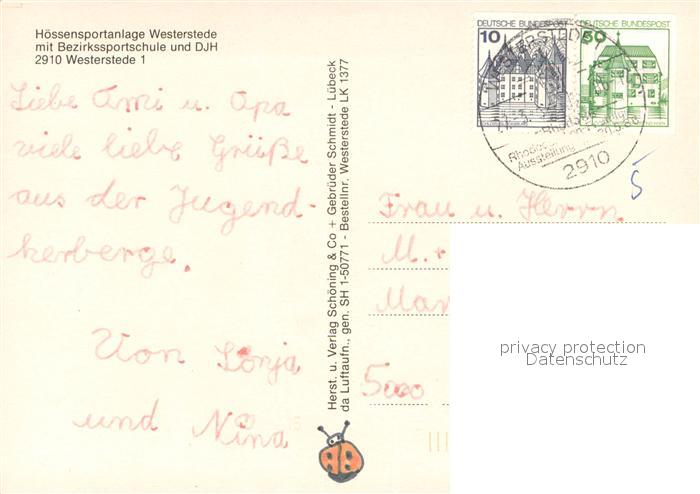 Hössensportanlage Westerstede
mit Bezirkssportschule und DJH
2910 Westerstede 1
Liebe Ami u. Opa
viele liebe Grüße
aus der Jugend-
herberge.
Von Sonja
und Nina
Herst. u. Verlag Schöning & Co + Gebrüder Schmidt - Lübeck
da Luftaufn., gen. SH 1-50771 - Bestellnr. Westerstede LK 1377
DEUTSCHE BUNDESPOST
10
DEUTSCHE BUNDESPOST
50
WESTERSTEDE
Ausstellung
2910
5
Frau u. Herrn
M. +
5000
privacy protection
Datenschutz